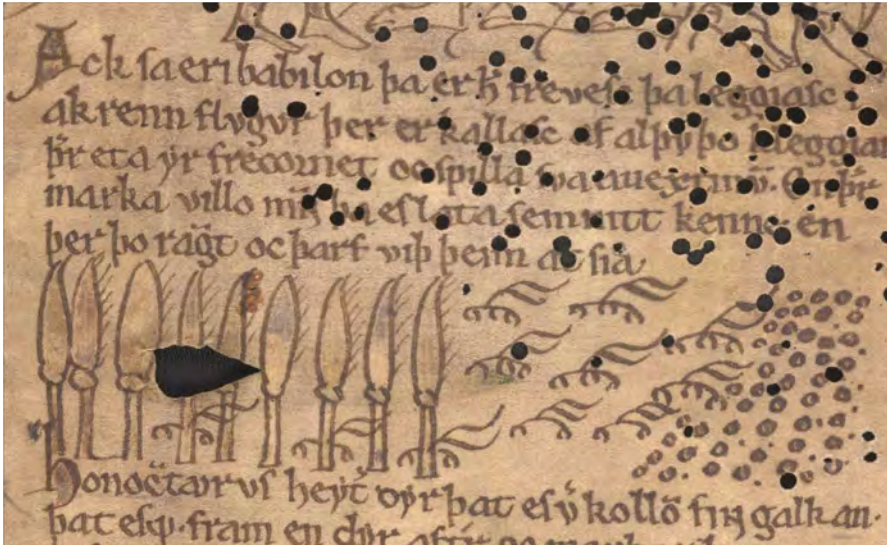 Ack sa er i babilon þa er h̅ frevesc þa leggiasc i
ak renn flvgvr þer er kallasc af alþyþo kleggiar
þr̅ eta yr frecornet oc spilla sva En þr̅
marka villo þa es lata sem rett kenne en
þer þo rāgt oc þarf viþ þeim at sia
Honocētavrvs heyt dyr þat es v̅ kollō fingalkan.
þat es fram en dyr aftr